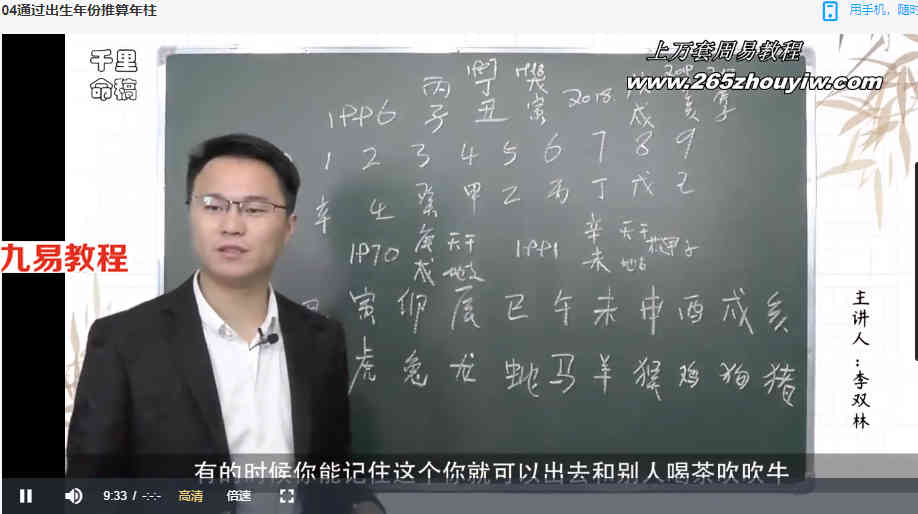 04通过出生年份推算年柱
用手机，随时
千里
命稿
上万套周易教程
www.265zhouyiw.com
1996 丙子 1997 丁丑 1998 戊寅 2018 戊戌
1 2 3 4 5 6 7 8 9
辛 壬 癸 甲 乙 丙 丁 戊 己
1970 庚戌 天干 地支 1991 辛未 天干 地支 花甲子
寅 卯 辰 巳 午 未 申 酉 戌 亥
虎 兔 龙 蛇 马 羊 猴 鸡 狗 猪
九易教程
主讲人：李双林
有的时候你能记住这个你就可以出去和别人喝茶吹吹牛
9:33 / -:-:-
高清
倍速